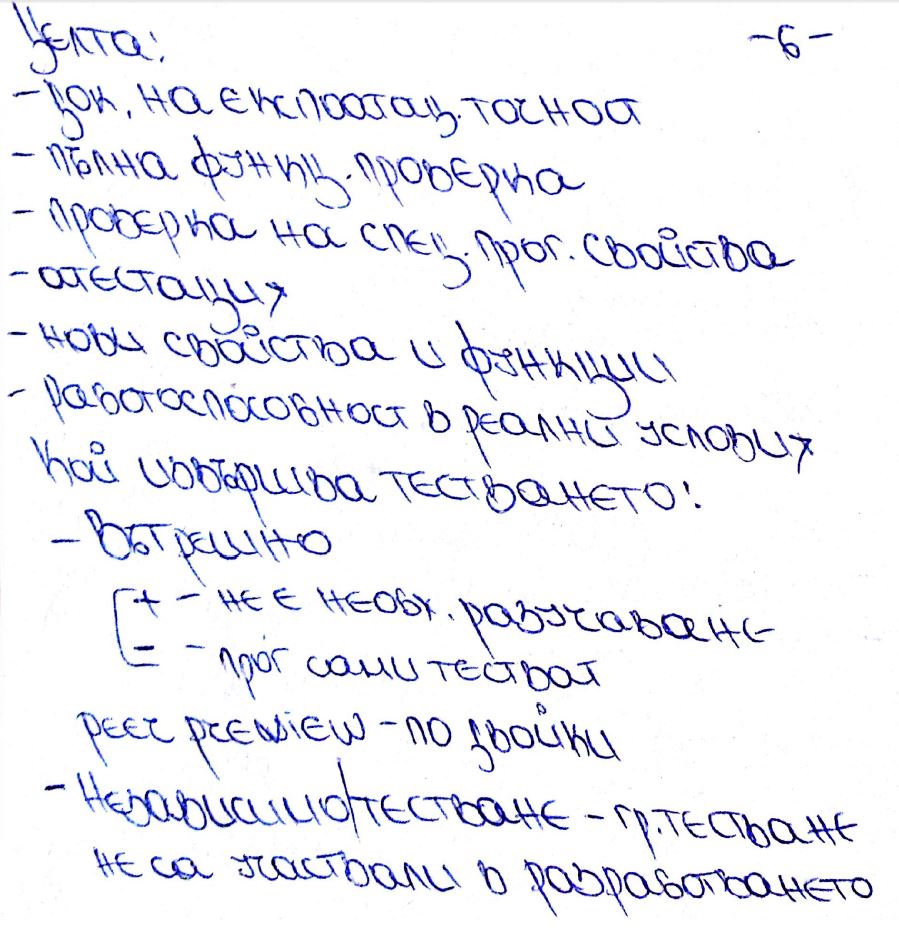 Целта: -6-
- док. на експлоатац. точност
- пълна функц. проверка
- проверка на спец. прог. свойства
- атестация
- нови свойства и функции
- работоспособност в реални условия
Кой извършва тестването!
- Вътрешно
+ - не е необх. разучаване
- - прог сами тестват
peer preview - по двойки
- Независимо/тестване - гр. тестване
не са участвали в разработването